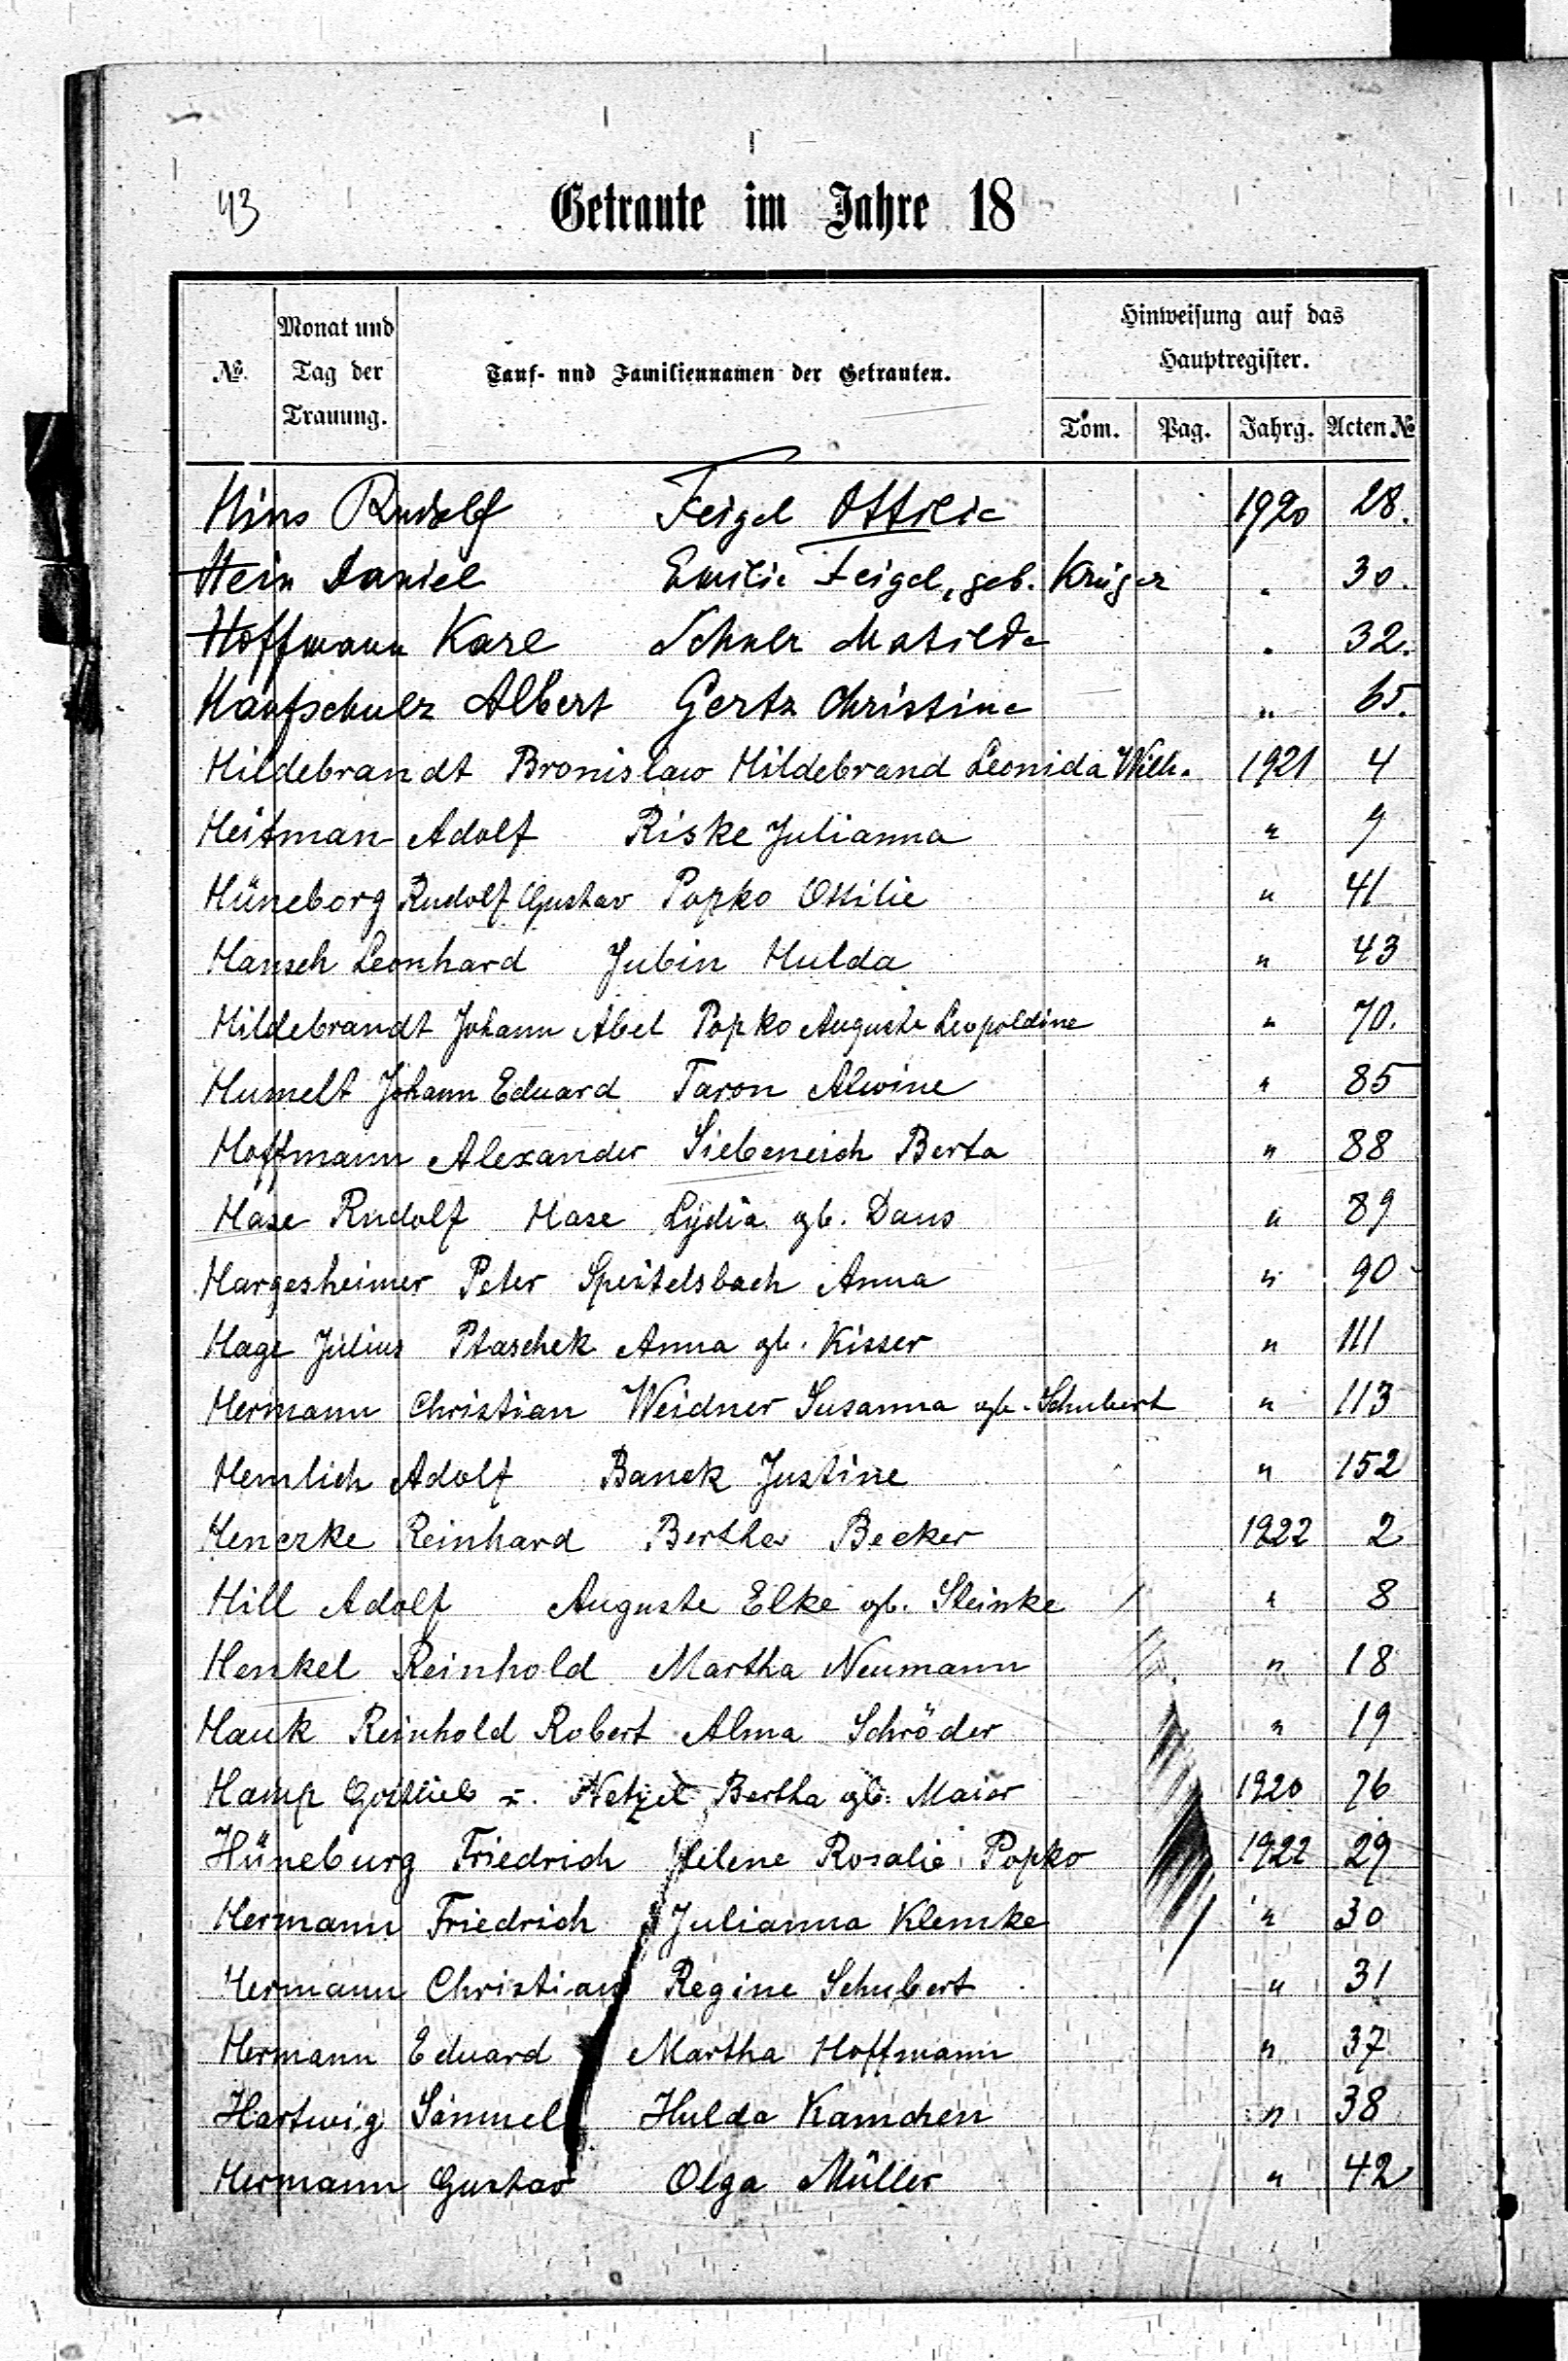 43
Getraute im Jahre 18
№.
Monat und Tag der Trauung.
Tauf- und Familiennamen der Getrauten.
Hinweisung auf das Hauptregister.
Tom. Pag. Jahrg. Acten №
Hins Rudolf Feigel Ottilie 1920 28.
Hein Daniel Emilie Feigel, geb. Krüger " 30.
Hoffmann Karl Schulz Matilde " 32.
Haufschulz Albert Gertz Christine " 65.
Hildebrandt Bronislaw Hildebrand Leonida Wilh. 1921 4
Heitman Adolf Riske Julianna " 7
Hüneborg Rudolf Gustav Popko Ottilie " 41
Hansch Leonhard Jubin Hulda " 43
Hildebrandt Johann Abel Popko Auguste Leopoldine " 70.
Humelt Johann Eduard Taron Alwine " 85
Hoffmann Alexander Siebeneich Berta " 88
Hase Rudolf Hase Lydia gb. Daus " 89
Hargesheimer Peter Speitelsbach Anna " 90
Hage Julius Ptaschek Anna gb. Kisser " 111
Hermann Christian Weidner Susanna gb. Schubert " 113
Hemlich Adolf Banek Justine " 152
Henczke Reinhard Bertha Becker 1922 2
Hill Adolf Auguste Elke gb. Steinke " 8
Henkel Reinhold Martha Neumann " 18
Hauk Reinhold Robert Alma Schröder " 19
Hamp Gottlieb u. Netzel Bertha gb. Maier 1920 76
Hüneburg Friedrich Helene Rosalie Popko 1922 29
Hermann Friedrich Julianna Klemke " 30
Hermann Christian Regine Schubert " 31
Hermann Eduard Martha Hoffmann " 37
Hartwig Samuel Hulda Kamchen " 38
Hermann Gustav Olga Müller " 42